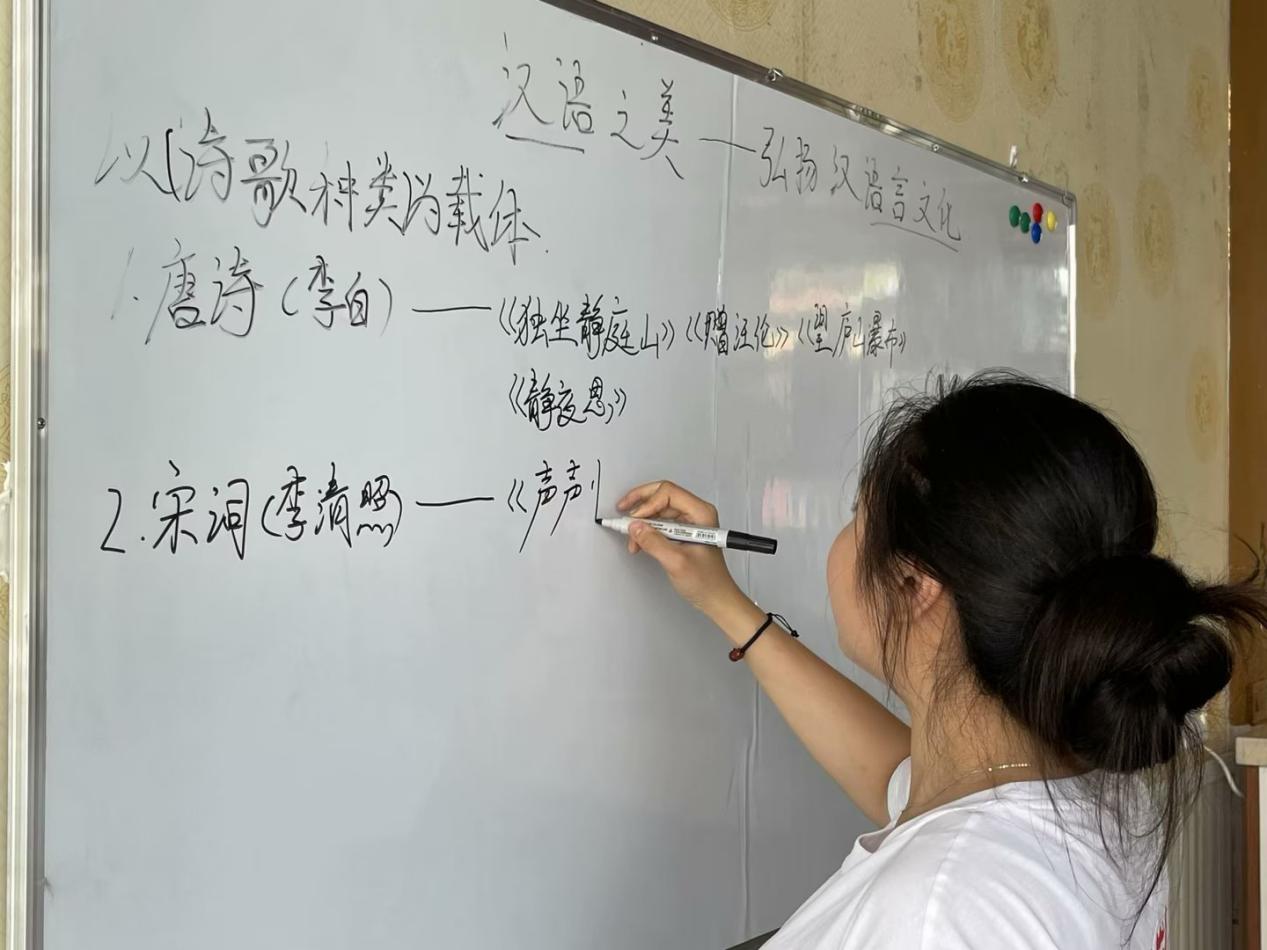 汉语之美——弘扬汉语言文化
以诗歌种类为载体.
1.唐诗(李白)——《独坐静庭山》《赠汪伦》《望庐山瀑布》
《静夜思》
2.宋词(李清照)——《声声